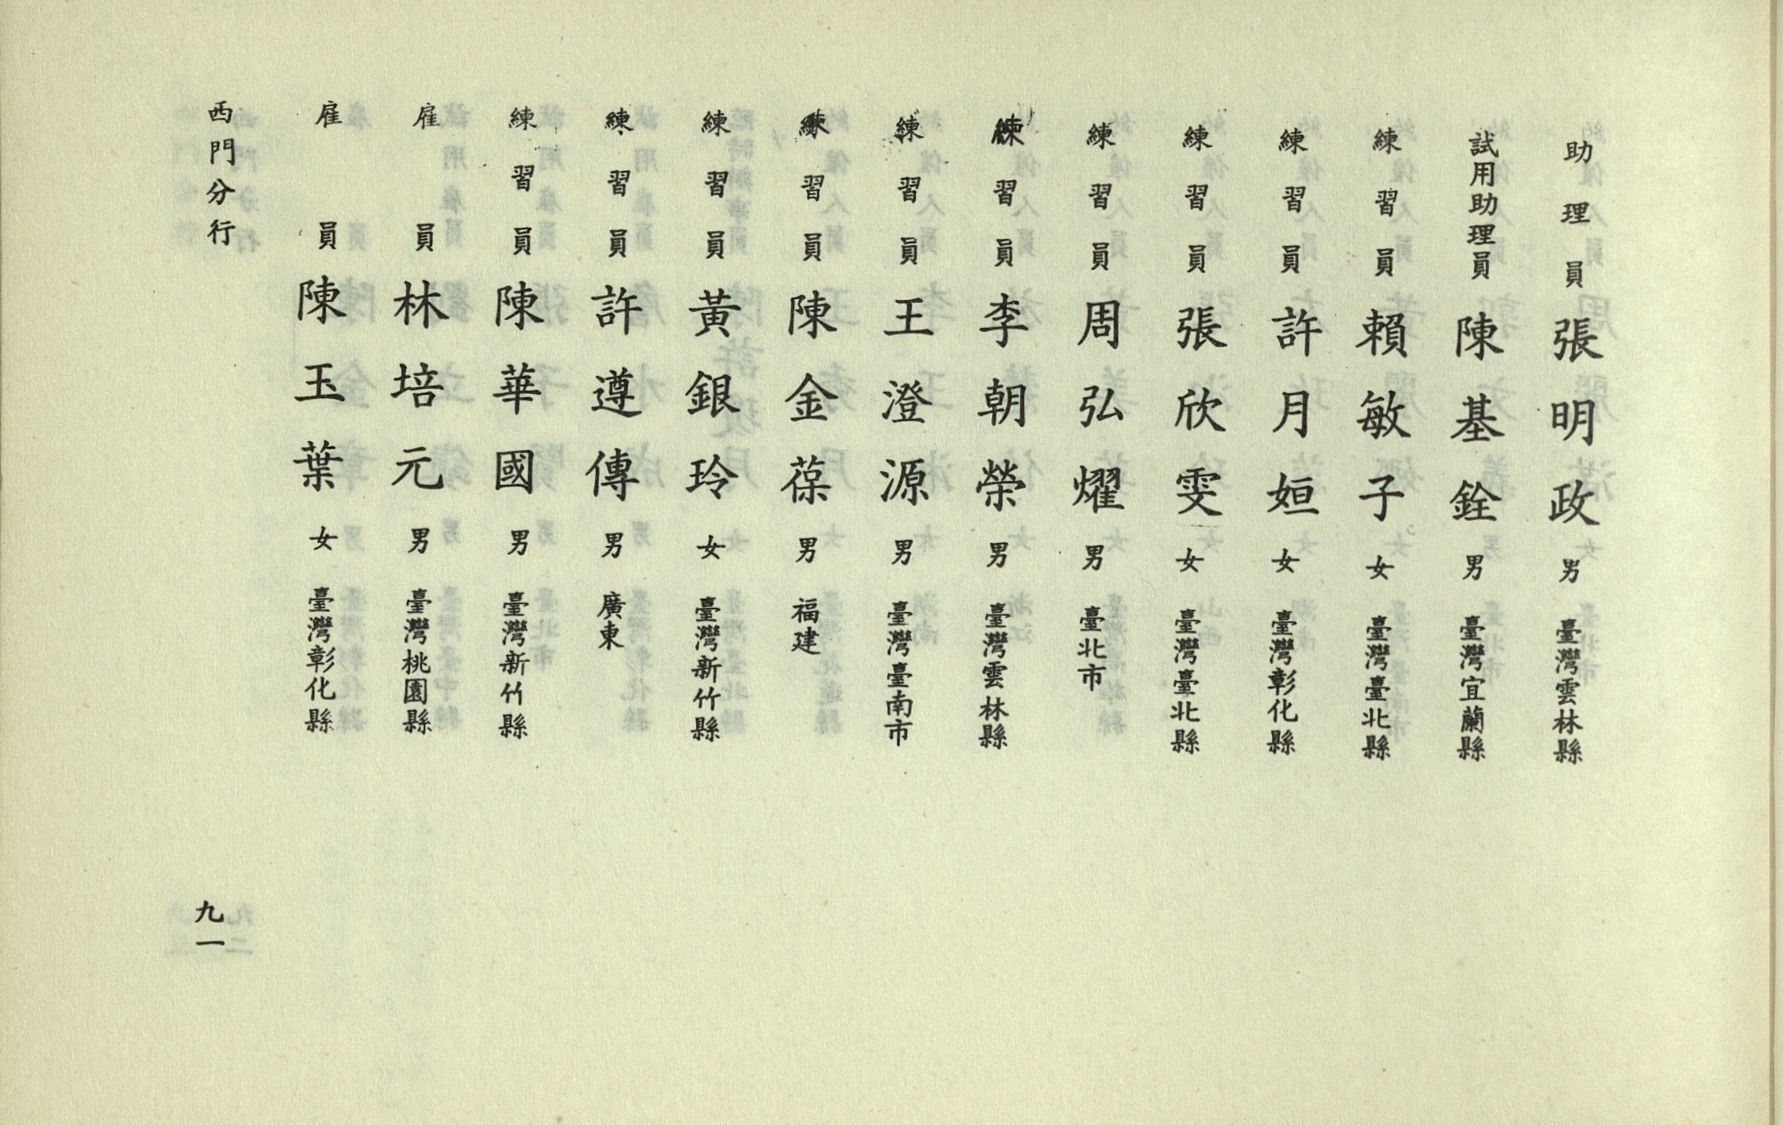 助理員張明政男臺灣雲林縣
試用助理員陳基銓男臺灣宜蘭縣
練習員賴敏子女臺灣臺北縣
練習員許月姮女臺灣彰化縣
練習員張欣雯女臺灣臺北縣
練習員周弘燿男臺北市
練習員李朝榮男臺灣雲林縣
練習員王澄源男臺灣臺南市
練習員陳金葆男福建
練習員黃銀玲女臺灣新竹縣
練習員許遵傳男廣東
練習員陳華國男臺灣新竹縣
雇員林培元男臺灣桃園縣
雇員陳玉葉女臺灣彰化縣
西門分行
九一